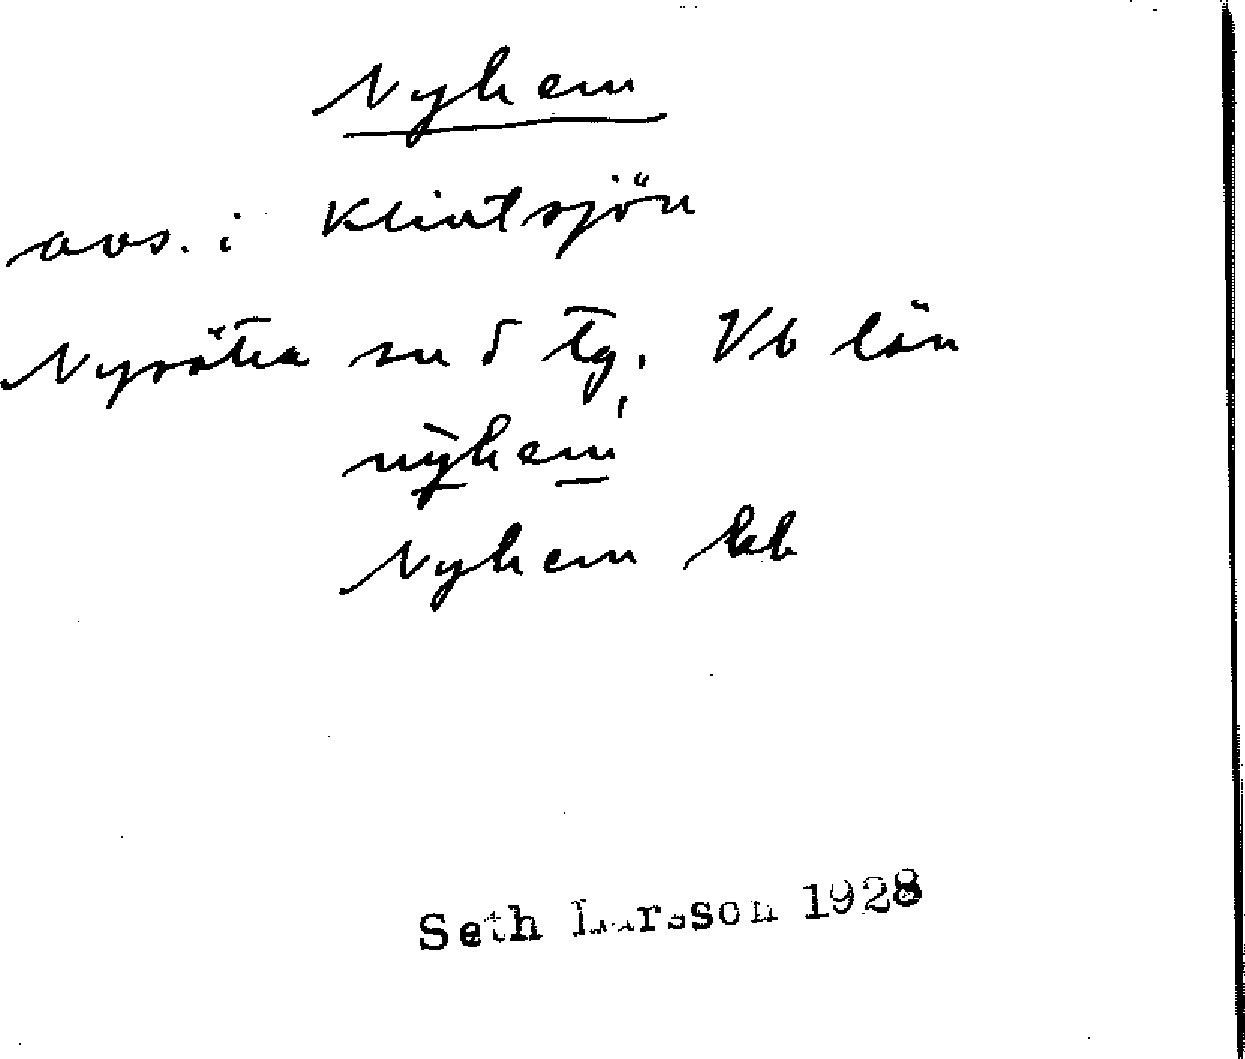 Nyhem
avs. i Klintsjön
Nysätra sn δ tg. Vb län
nỳhem
Nyhem kb
Seth Larsson 1928